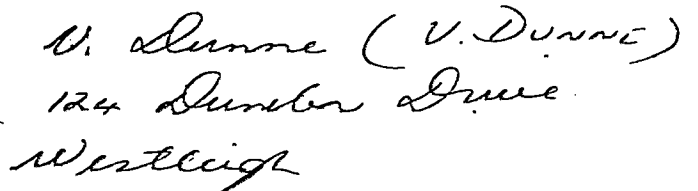 V. Dunne (V. DUNNE)
124 Dunbar Drive
Westleigh